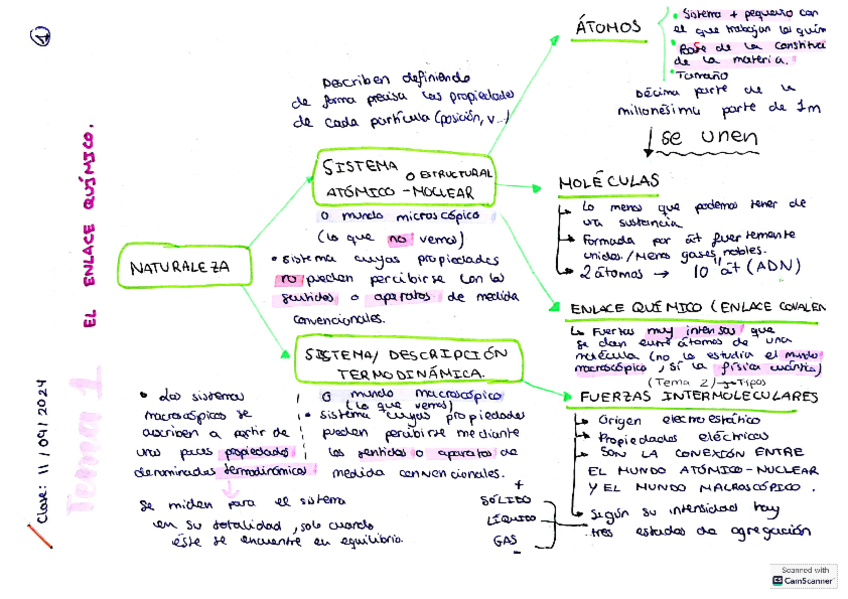 1
Clase: 11/09/2024
Tema 1
EL ENLACE QUÍMICO.
NATURALEZA
Describen definiendo
de forma precisa las propiedades
de cada partícula (posición, v...)
SISTEMA
O ESTRUCTURAL
ATÓMICO-NUCLEAR
o mundo microscópico
(lo que no vemos)
• sistema cuyas propiedades
no pueden percibirse con los
sentidos o aparatos de medida
convencionales.
SISTEMA/DESCRIPCIÓN
TERMODINÁMICA.
o mundo macroscópico
(lo que vemos)
• sistema cuyas propiedades
pueden percibirse mediante
los sentidos o aparatos de
medida convencionales.
• Los sistemas
macroscópicos se
describen a partir de
unas pocas propiedades
denominadas termodinámicas
Se miden para el sistema
en su totalidad, solo cuando
éste se encuentre en equilibrio.
ÁTOMOS
• Sistema + pequeño con
el que trabajan los quím
• Base de la constituci
de la materia.
• Tamaño
Décima parte de la
millonésima parte de 1m
se unen
MOLÉCULAS
Lo menos que podemos tener de
una sustancia
Formada por át fuertemente
unidos./Menos gases nobles.
2 átomos → 10¹¹ át (ADN)
ENLACE QUÍMICO (ENLACE COVALEN
Fuerzas muy intensas que
se dan entre átomos de una
molécula (no lo estudia el mundo
macroscópico, sí la física cuántica)
(Tema 2) → Tipos
FUERZAS INTERMOLECULARES
Origen electroestático
Propiedades eléctricas
SON LA CONEXIÓN ENTRE
EL MUNDO ATÓMICO-NUCLEAR
Y EL MUNDO MACROSCÓPICO.
Según su intensidad hay
tres estados de agregación
+
SÓLIDO
LÍQUIDO
GAS
-
Scanned with
CS CamScanner